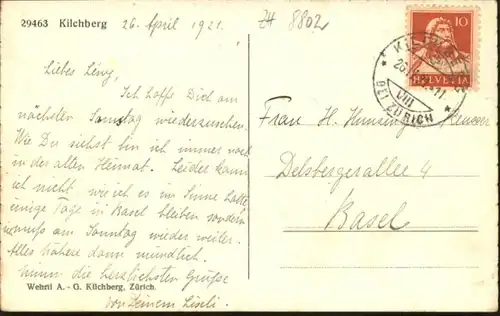 29463 Kilchberg 26. April 1921.
ZH 8802
10
HELVETIA
KILCHBERG
VIII
BEI ZÜRICH
Liebes Lény,
Ich hoffe Dich am
nächsten Sonntag wiederzusehen.
Wie Du siehst bin ich immer noch
in der alten Heimat. Leider kann
ich nicht wie ich es im Sinne hatte
einige Tage in Basel bleiben sondern
muss am Sonntag wieder weiter.
Alles nähere dann mündlich.
die herzlichsten Grüsse
von Deinem Liseli.
Frau H. Hunsinger
Delsbergerallee 4
Basel
Wehrli A.-G. Kilchberg, Zürich.